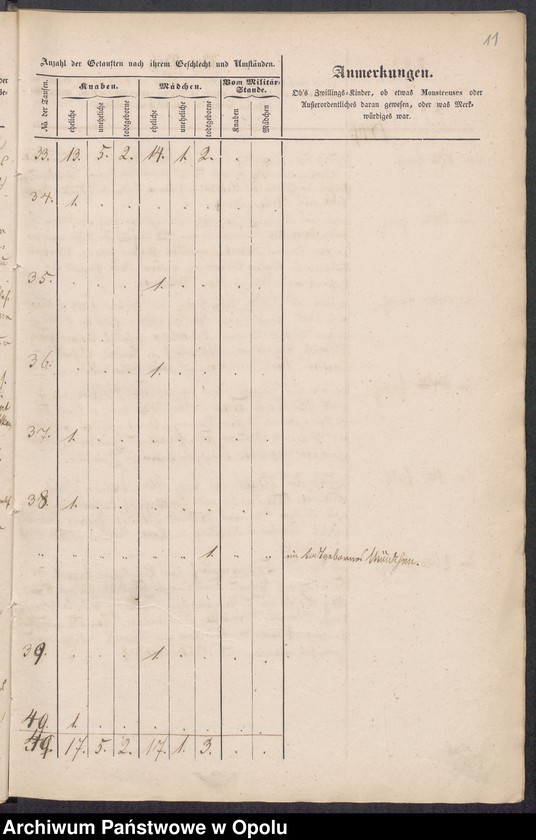 11
Anzahl der Getauften nach ihrem Geschlecht und Umständen.
Anmerkungen.
Ob's Zwillings-Kinder, ob etwas Monstreuses oder
Außerordentliches daran gewesen, oder was Merk-
würdiges war.
No. der Taufen.
Knaben.
Mädchen.
Vom Militär-
Stande.
eheliche
uneheliche
todtgeborne
eheliche
uneheliche
todtgeborne
Knaben
Mädchen
33. 13. 5. 2. 14. 1. 2. . .
34. 1. . . . . . . .
35. . . . 1. . . . .
36. . . . 1. . . . .
37. 1. . . . . . . .
38. 1. . . . . . . .
" . . . . . 1. " " ein todtgebornes Mädchen.
39. . . . 1. . . . .
40. 1. . . . . . . .
40. 17. 5. 2. 17. 1. 3. . .
Archiwum Państwowe w Opolu